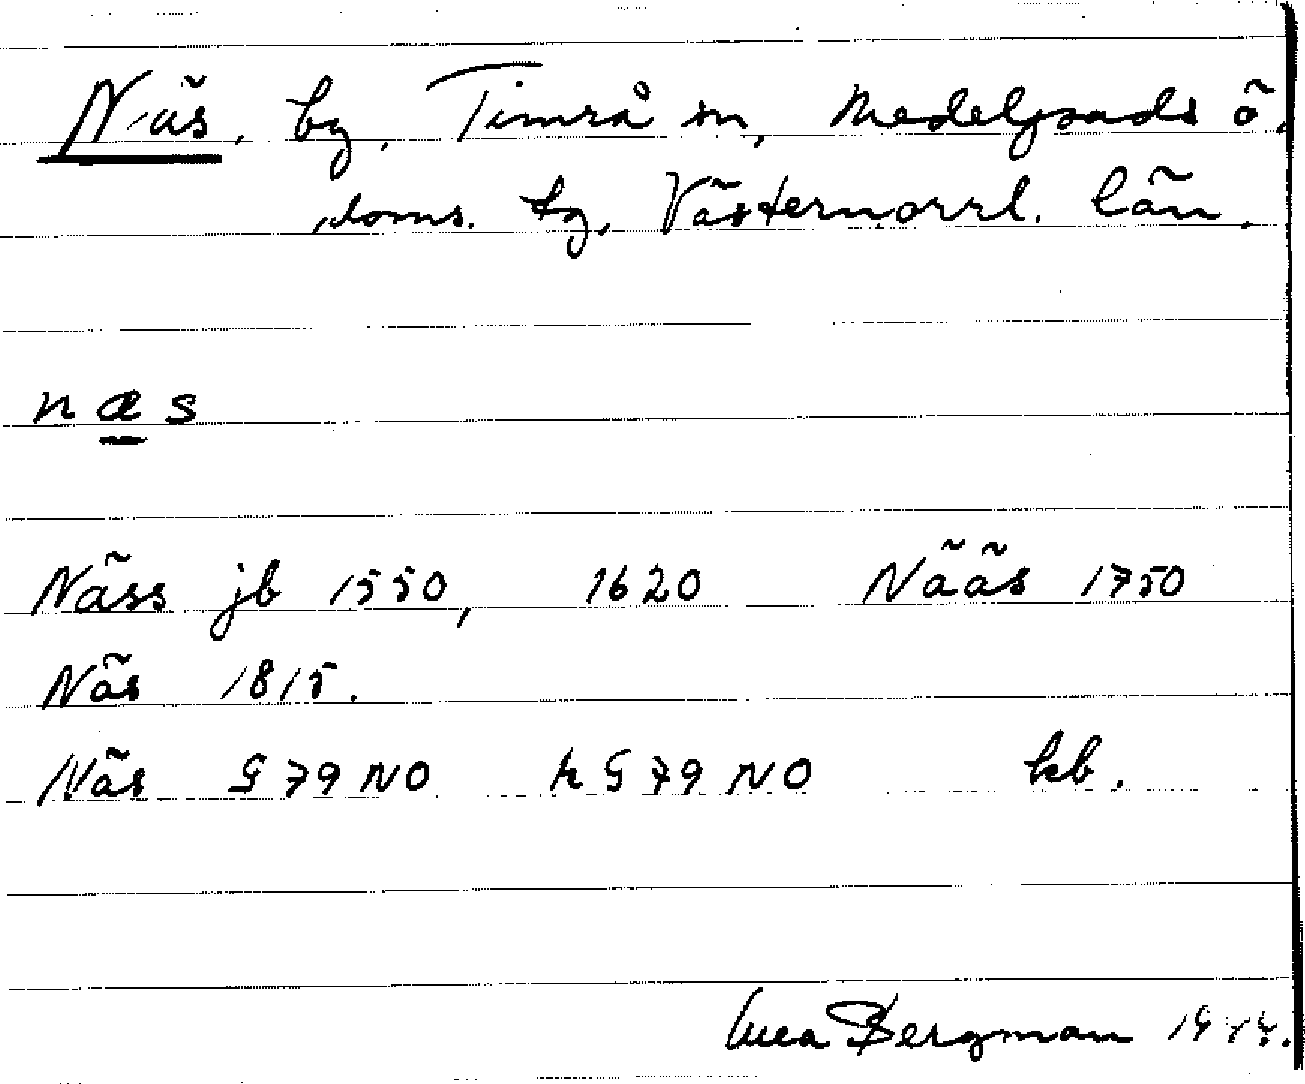 Näs, by, Timrå sn, Medelpads ö.
doms. tg, Västernorrl. län.
næs
Näss jb 1550, 1620 Nääs 1750
Näs 1815.
Näs G 79 NO h G 79 NO kb.
Bergman